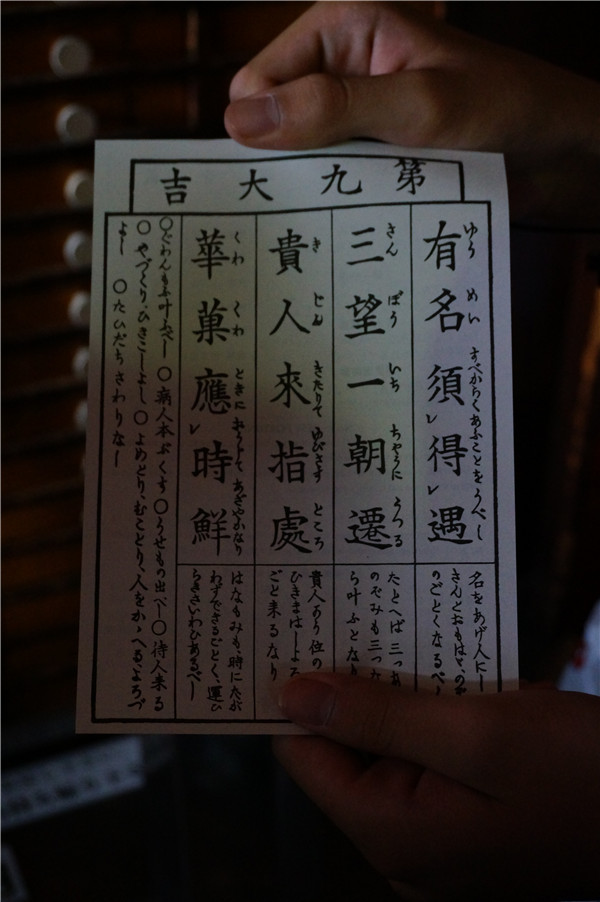 第九大吉
有名須得遇
ゆうめいすべからくあふことをうべし
名をあげ人にし
さんとおもはゝのぞ
のごとくなるべし
三望一朝遷
さんぼういちちやうにうつる
たとへば三つあ
のぞみも三つ
ら叶ふとなり
貴人來指處
きじんきたりてゆびさすところ
貴人あり位の
ひきまはしよろ
ごと来るなり
華菓應時鮮
くわくわときにおうしてあざやかなり
はなもみも、時にたが
わずできるごとく、運ひ
らきさいわひあるべし
○ぐわんもふ叶ふべし ○病人本ぶくす ○うせもの出べし ○待人来る
○やづくり、ひきこしよし ○よめどり、むことり、人をかゝへる、よろづ
よし ○たびだちさわりなし